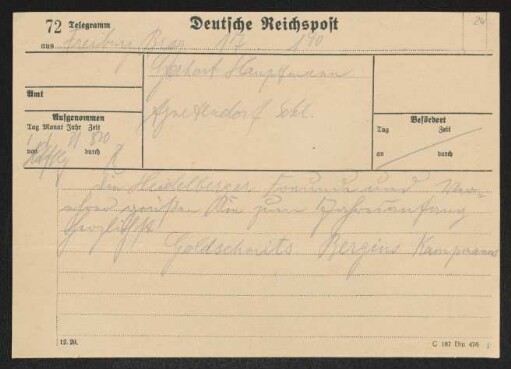 72 Telegramm Deutsche Reichspost
aus Freiburg Brsg 17 190
Gerhart Hauptmann
Agnetendorf Schl.
Amt
Aufgenommen
Tag Monat Jahr Zeit
1 1 820
von durch
Befördert
Tag Zeit
an durch
die Heidelberger Freunde und Ver-
ehrer grüßen Sie zum Jahresanfang
herzlichst
Goldschmits Bergius Kampmann
12. 20.
C 187 Din 476